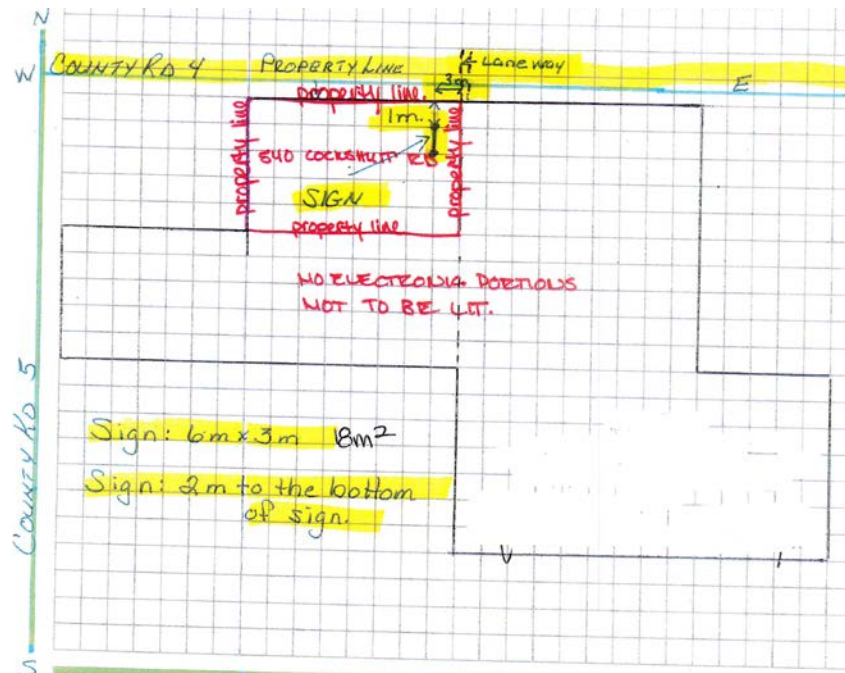 N
W
COUNTY RD 4 PROPERTY LINE Laneway
E
3m
property line.
1m.
property line
property line
540 COCKSHUTT RD
SIGN
property line
NO ELECTRONIC PORTIONS
NOT TO BE LIT.
COUNTY RD 5
Sign: 6m x 3m 18m²
Sign: 2m to the bottom
of sign.
S